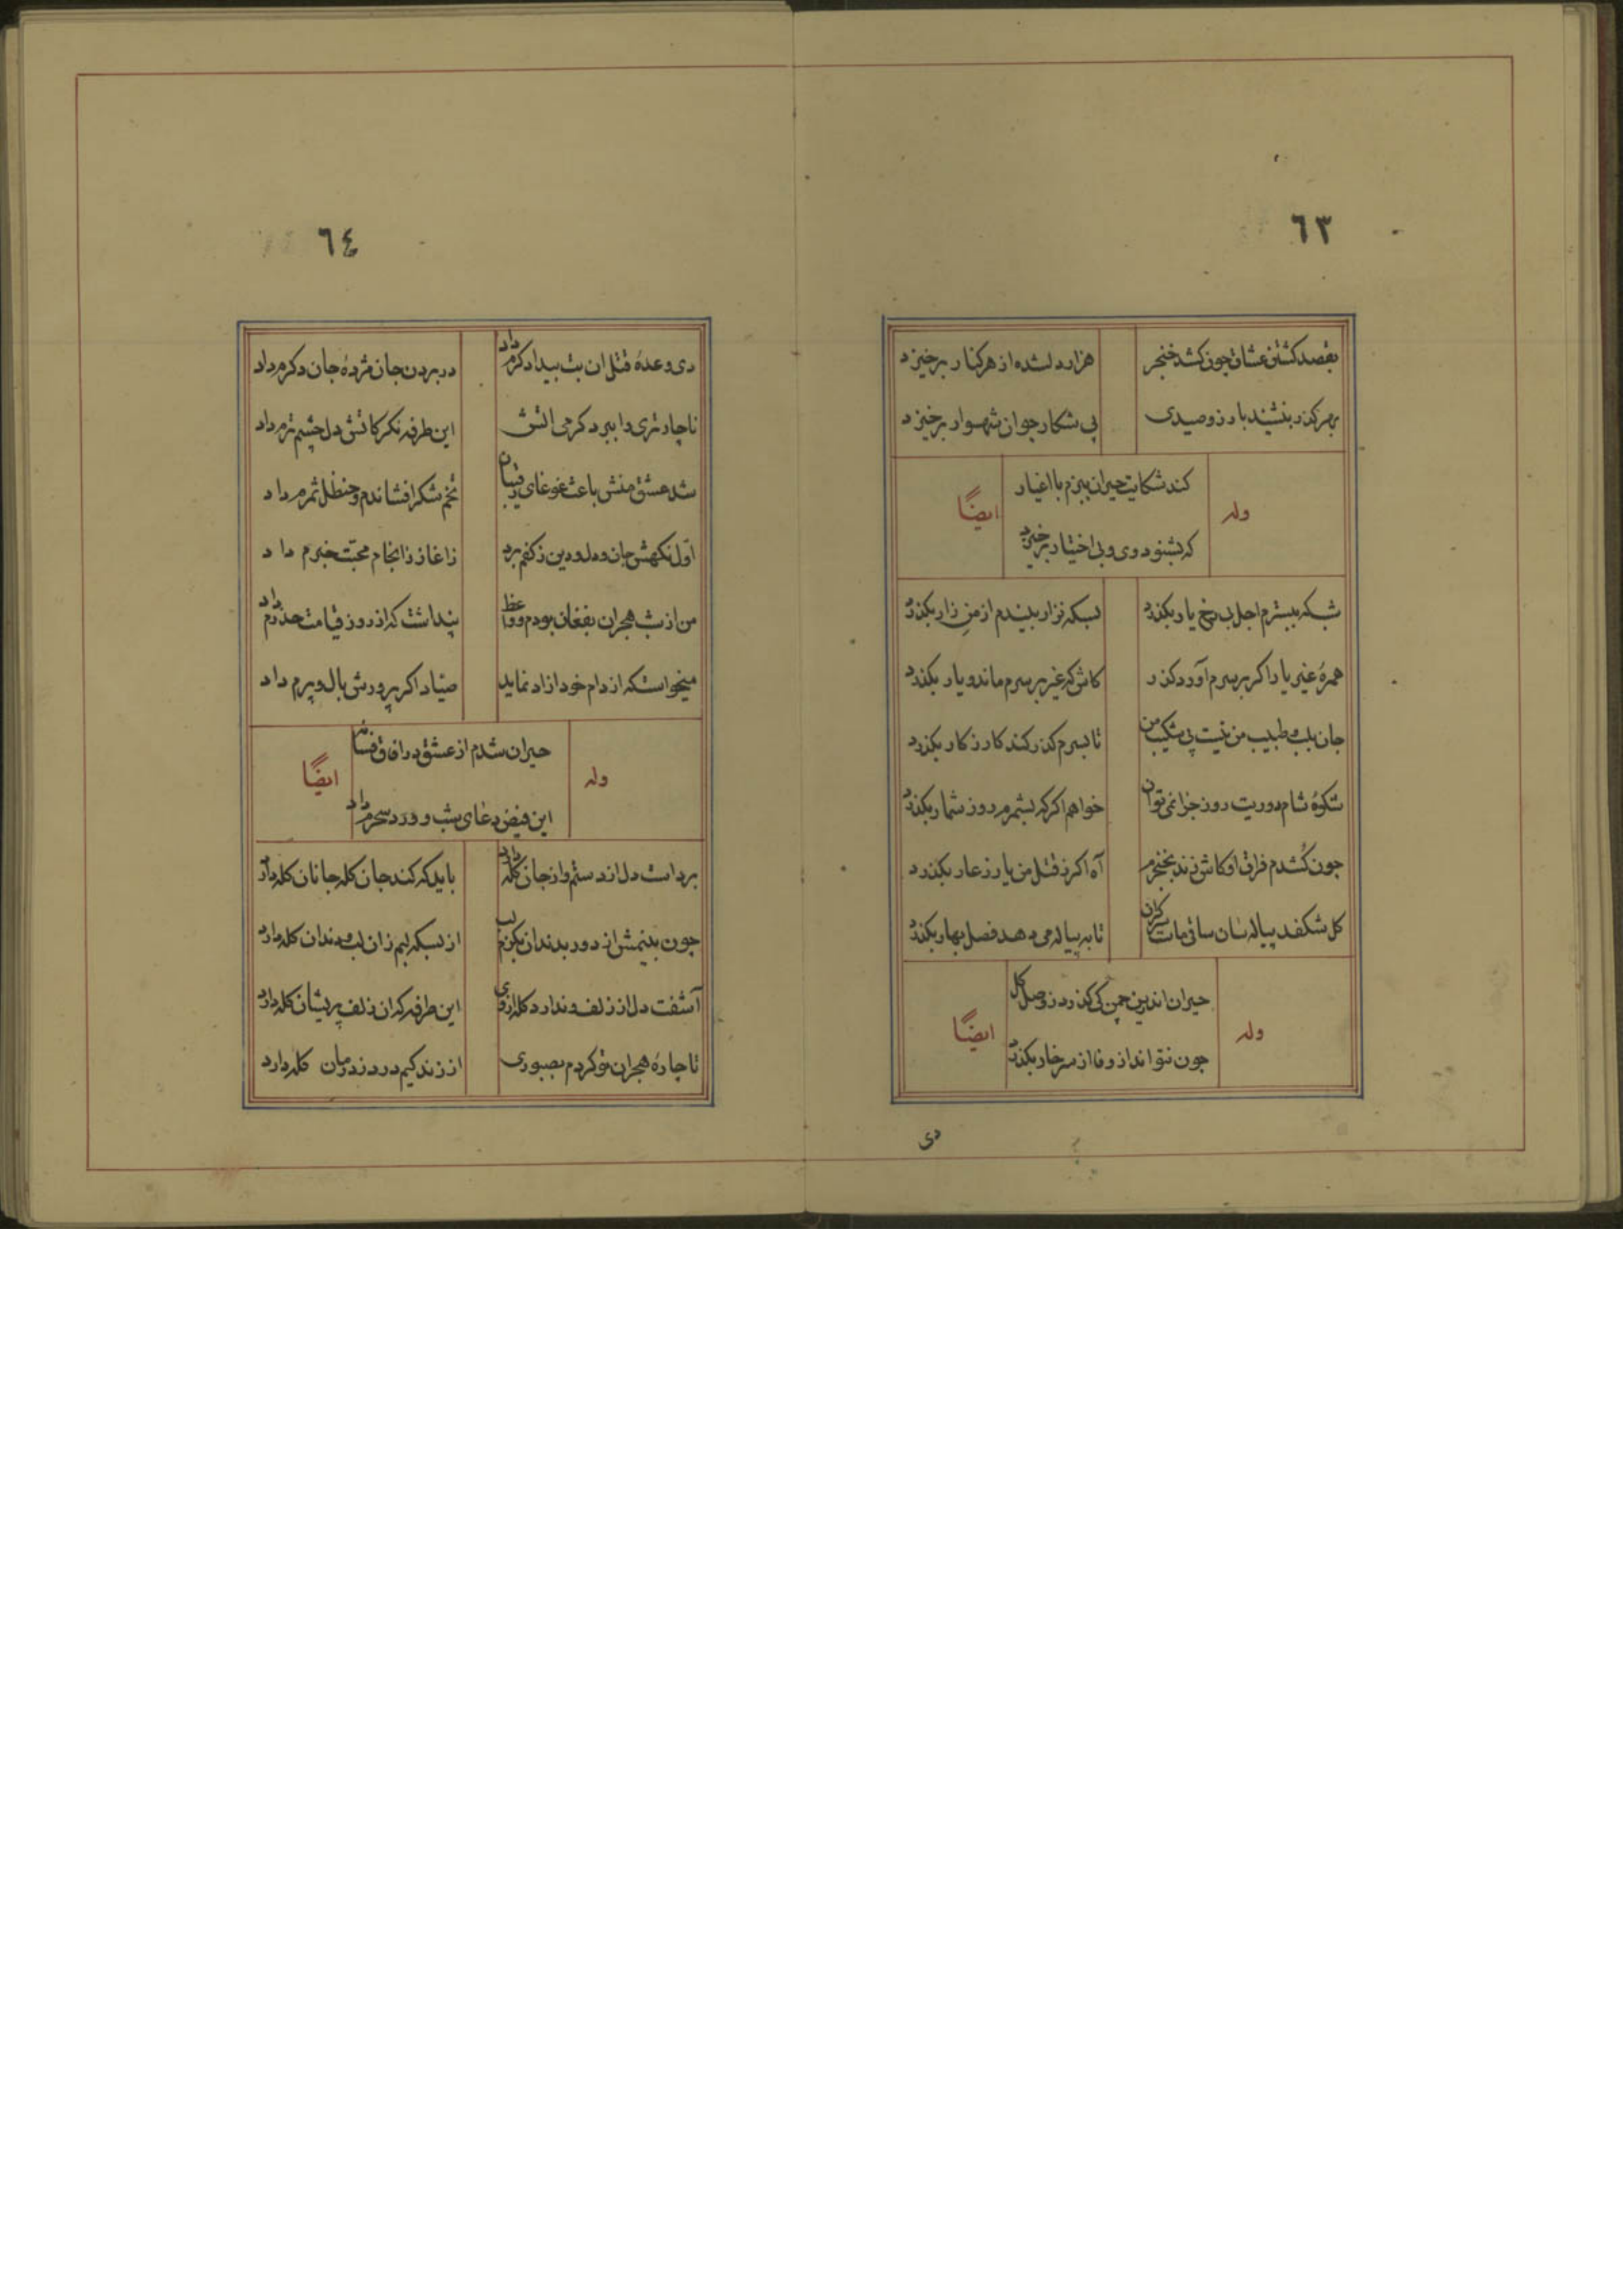 ٦٣
بقصد کشتن عشاق چون کشد خنجر
هزار دلشده از هر کنار برخیزد
بهر کذر بنشیند بارزو صیدی
پی شکار جوان شهسوار برخیزد
وله
کند شکایت حیران ببزم با اغیار
که بشنود وی و بی اختیار برخیزد
ایضًا
شبکه ببسترم اجل بی رخ یار بکذرد
بسکه نزار بیندم از من زار بکذرد
همرهٔ غیر یار را کر بسرم آورد کذر
کاش که غیر بر سرم ماند و یار بکذرد
جان بلب و طبیب من نیست پی شکیب من
تا بسرم کذر کند کار ز کار بکذرد
شکوهٔ شام دوریت روز جزا نمی توان
خواهم اکر که بشمرم روز شمار بکذرد
چون کُشدم فراق او کاش زند بخنجرم
آه اکر ز قتل من یار ز عار بکذرد
کل شکفد پیاله سان ساقی ماست سرکران
تا به پیاله می دهد فصل بهار بکذرد
وله
حیران اندرین چمن کی کذرد ز وصل کل
چون نتواند از وفا از سر خار بکذرد
ایضًا
دی
٦٤
دی وعدهٔ قتل ان بت بیدادکرم داد
در بردن جان مژدهٔ جان دکرم داد
ناچار تری را ببرد کرمی اتش
این طرفه نکر کاتش دل چشم ترم داد
شد عشق منش باعث غوغای رقیبان
تخم شکر افشاندم و حنظل ثمرم داد
اوّل نکهش جان و دل و دین ز کفم برد
ز اغاز ز انجام محبّت خبرم داد
من از شب هجران بفغان بودم و واعظ
پنداشت که از روز قیامت حذرم داد
میخواست که از دام خود ازاد نماید
صیّاد اکر پرورش بال و پرم داد
وله
حیران شدم از عشق در افاق فسانه
این فیض دعای شب و ورد سحرم داد
ایضًا
برداست دل از دستم و از جان کله دارد
باید که کند جان کله جانان کله دارد
چون بینمش از دور بدندان بکزم لب
از بسکه لبم زان لب و دندان کله دارد
آشفت دل از زلف و ندارد کله از وی
این طرفه که ان زلف پریشان کله دارد
تا چارهٔ هجران تو کردم بصبوری
از زندکیم درد ز درمان کله دارد